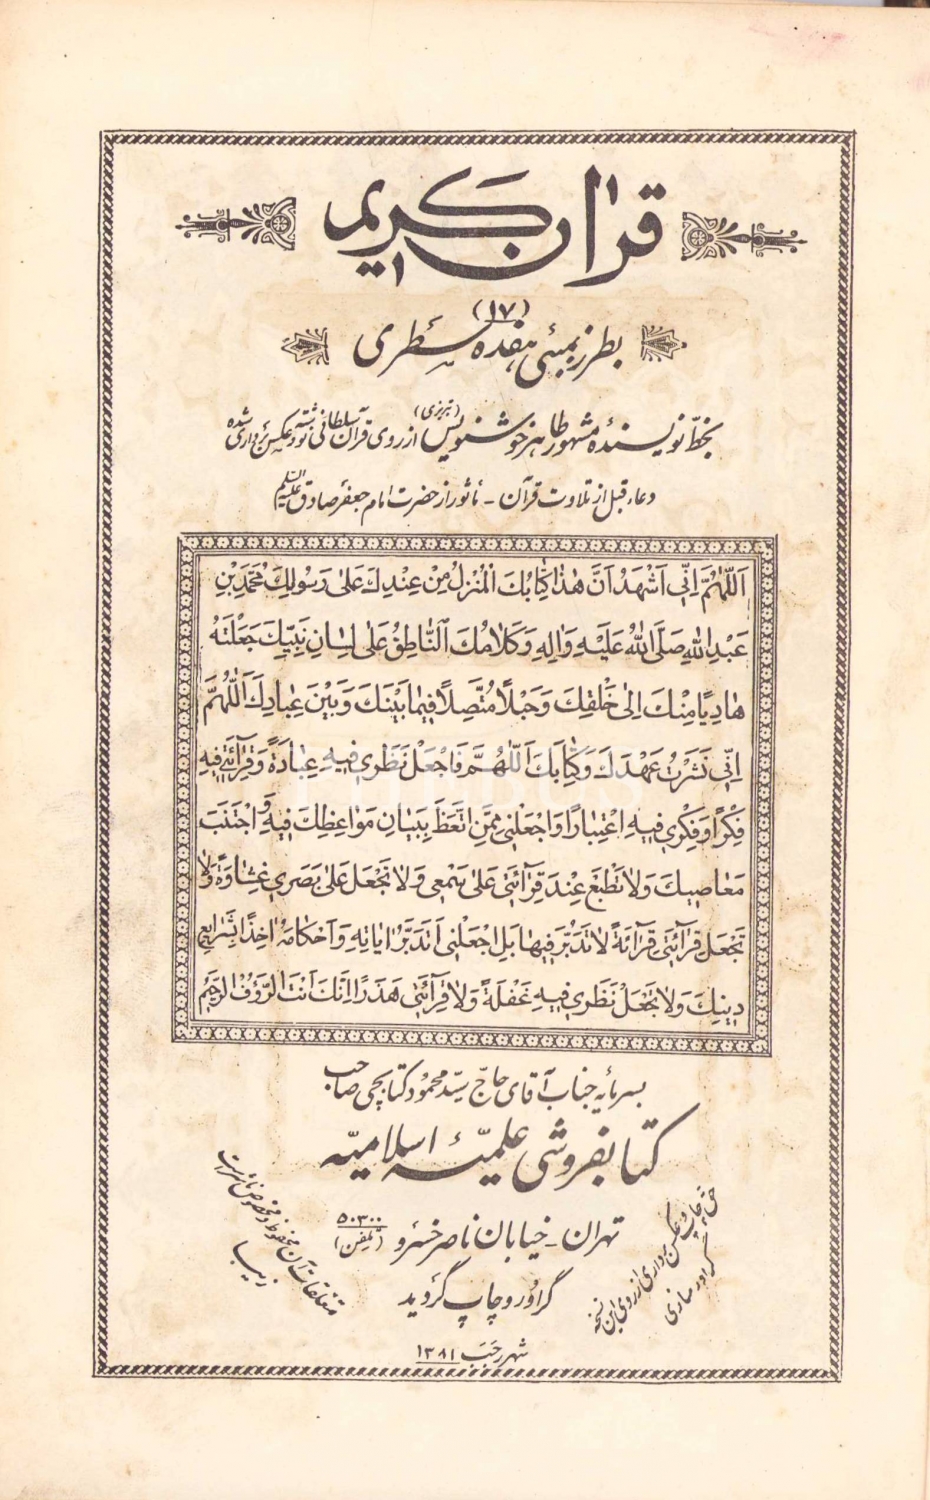 قرآن کریم
(۱۷)
بطرز بمبئی هفده سطری
بخطّ نویسندهٔ مشهور طاهر خوشنویس (تبریزی) از روی قرآن سلطانی نوشته و عکس برداری شده
دعاء قبل از تلاوت قرآن - مأثور از حضرت امام جعفر صادق علیه السّلام
اَللّٰهُمَّ اِنّی اَشْهَدُ اَنَّ هٰذا کِتابُكَ الْمُنْزَلُ مِنْ عِنْدِكَ عَلیٰ رَسُولِكَ مُحَمَّدِ بْنِ
عَبْدِ اللّٰهِ صَلَّی اللّٰهُ عَلَیْهِ وَاٰلِهِ وَکَلامُكَ النّاطِقُ عَلیٰ لِسانِ نَبِیِّكَ جَعَلْتَهُ
هادِیًا مِنْكَ اِلیٰ خَلْقِكَ وَحَبْلًا مُتَّصِلًا فیما بَیْنَكَ وَبَیْنَ عِبادِكَ اَللّٰهُمَّ
اِنّی نَشَرْتُ عَهْدَكَ وَکِتابَكَ اَللّٰهُمَّ فَاجْعَلْ نَظَری فیهِ عِبادَةً وَقِرائَتی فیهِ
فِکْرًا وَفِکْری فیهِ اعْتِبارًا وَاجْعَلْنی مِمَّنِ اتَّعَظَ بِبَیانِ مَواعِظِكَ فیهِ وَاجْتَنَبَ
مَعاصیكَ وَلا تَطْبَعْ عِنْدَ قِرائَتی عَلیٰ سَمْعی وَلا تَجْعَلْ عَلیٰ بَصَری غِشاوَةً وَلا
تَجْعَلْ قِرائَتی قِرائَةً لا تَدَبُّرَ فیها بَلِ اجْعَلْنی اَتَدَبَّرُ اٰیاتِهِ وَاَحْکامَهُ اٰخِذًا بِشَرایِعِ
دینِكَ وَلا تَجْعَلْ نَظَری فیهِ غَفْلَةً وَلا قِرائَتی هَذَرًا اِنَّكَ اَنْتَ الرَّؤُفُ الرَّحیمُ
بسرمایه جناب آقای حاج سیّد محمود کتابچی صاحب
کتابفروشی علمیّهٔ اسلامیّه
تهران - خیابان ناصر خسرو (تلفن) ۵۰۳۰۰
گراور و چاپ گردید
حق چاپ و عکس برداری از روی این نسخه
گراور سازی
متعلقات آن محفوظ و مخصوص ناشر است
زیبا
شهر رجب ۱۳۸۱